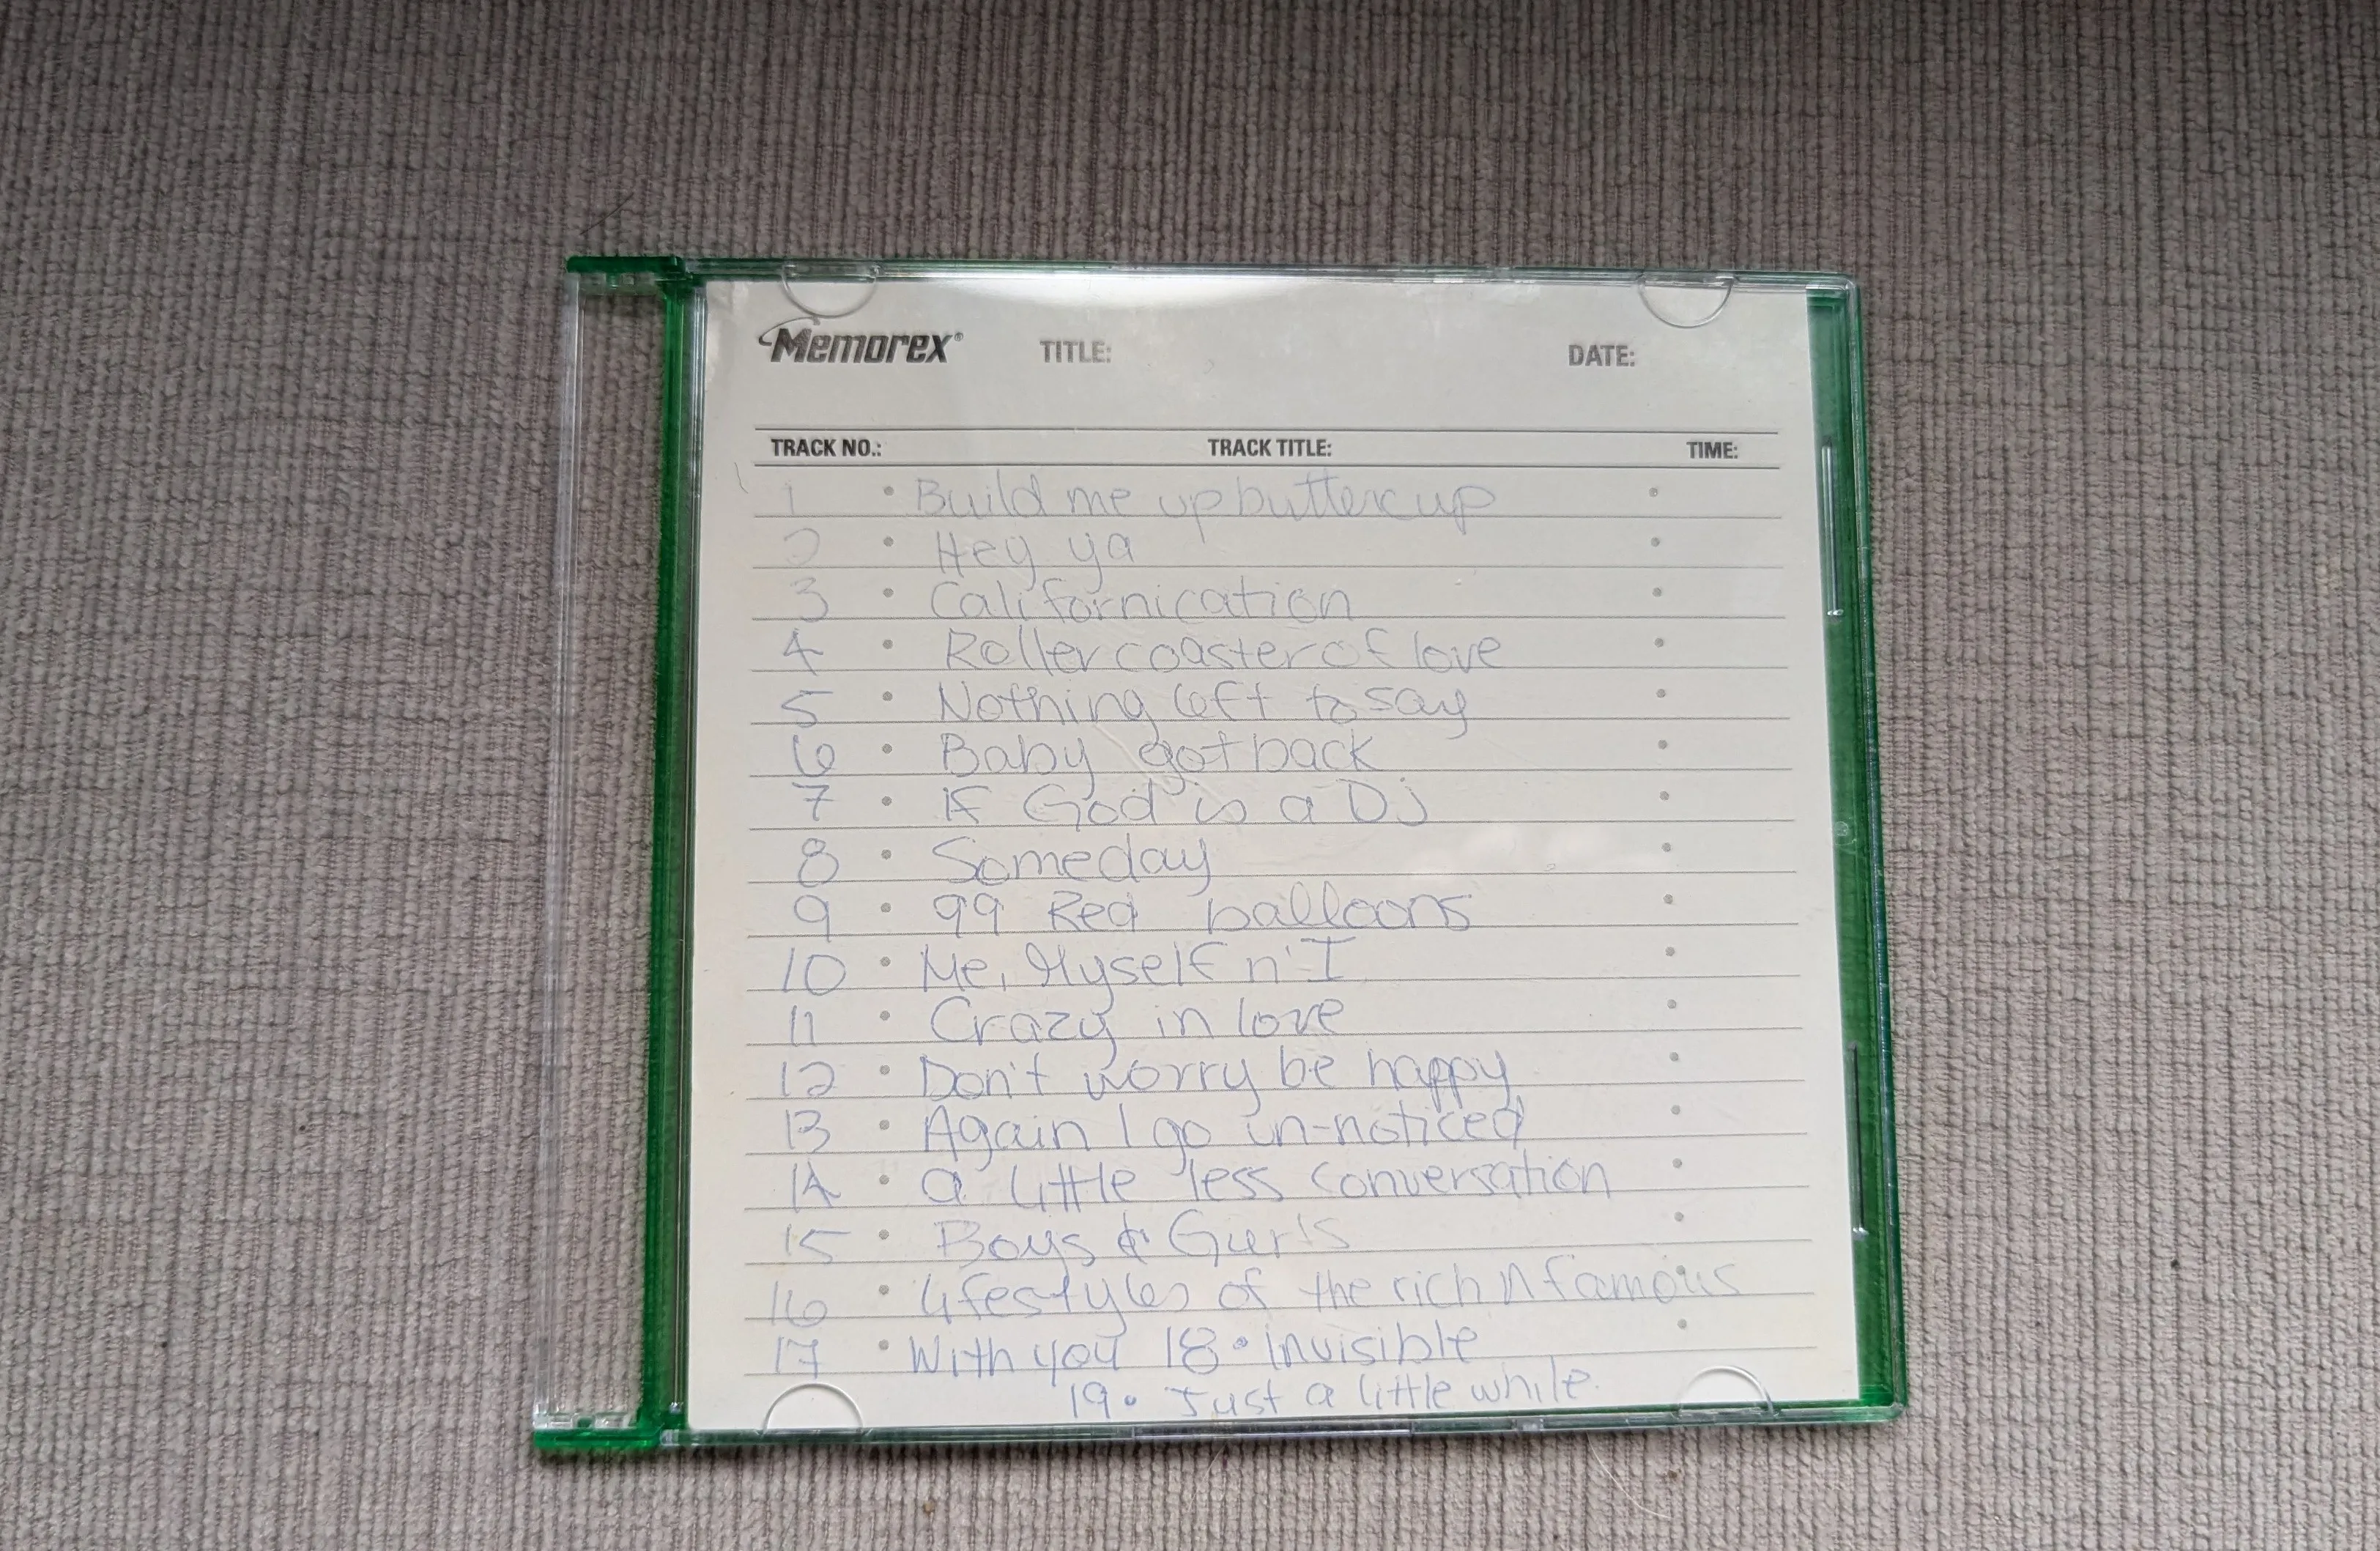 Memorex® TITLE: DATE:
TRACK NO.: TRACK TITLE: TIME:
1 • Build me up buttercup
2 • Hey ya
3 • Californication
4 • Roller coaster of love
5 • Nothing left to say
6 • Baby got back
7 • If God is a DJ
8 • Someday
9 • 99 Red balloons
10 • Me, Myself n' I
11 • Crazy in love
12 • Don't worry be happy
13 • Again I go un-noticed
14 • a little less conversation
15 • Boys & Gurls
16 • Lifestyles of the rich n famous
17 • With you 18 • Invisible
19 • Just a little while